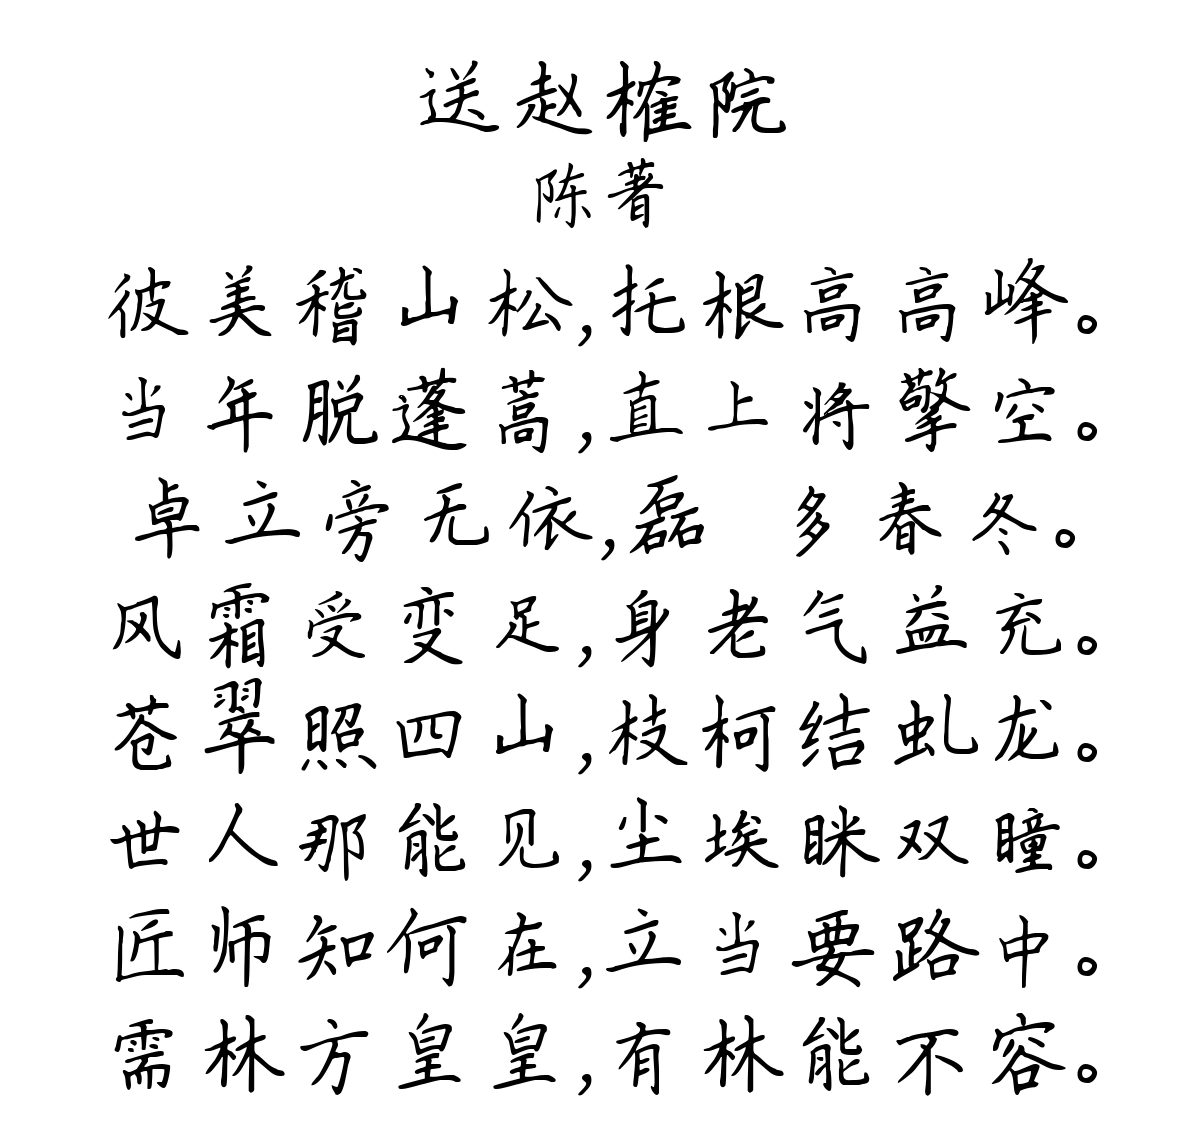 送赵榷院
陈著
彼美稽山松,托根高高峰。
当年脱蓬蒿,直上将擎空。
卓立旁无依,磊 多春冬。
风霜受变足,身老气益充。
苍翠照四山,枝柯结虬龙。
世人那能见,尘埃眯双瞳。
匠师知何在,立当要路中。
需林方皇皇,有林能不容。